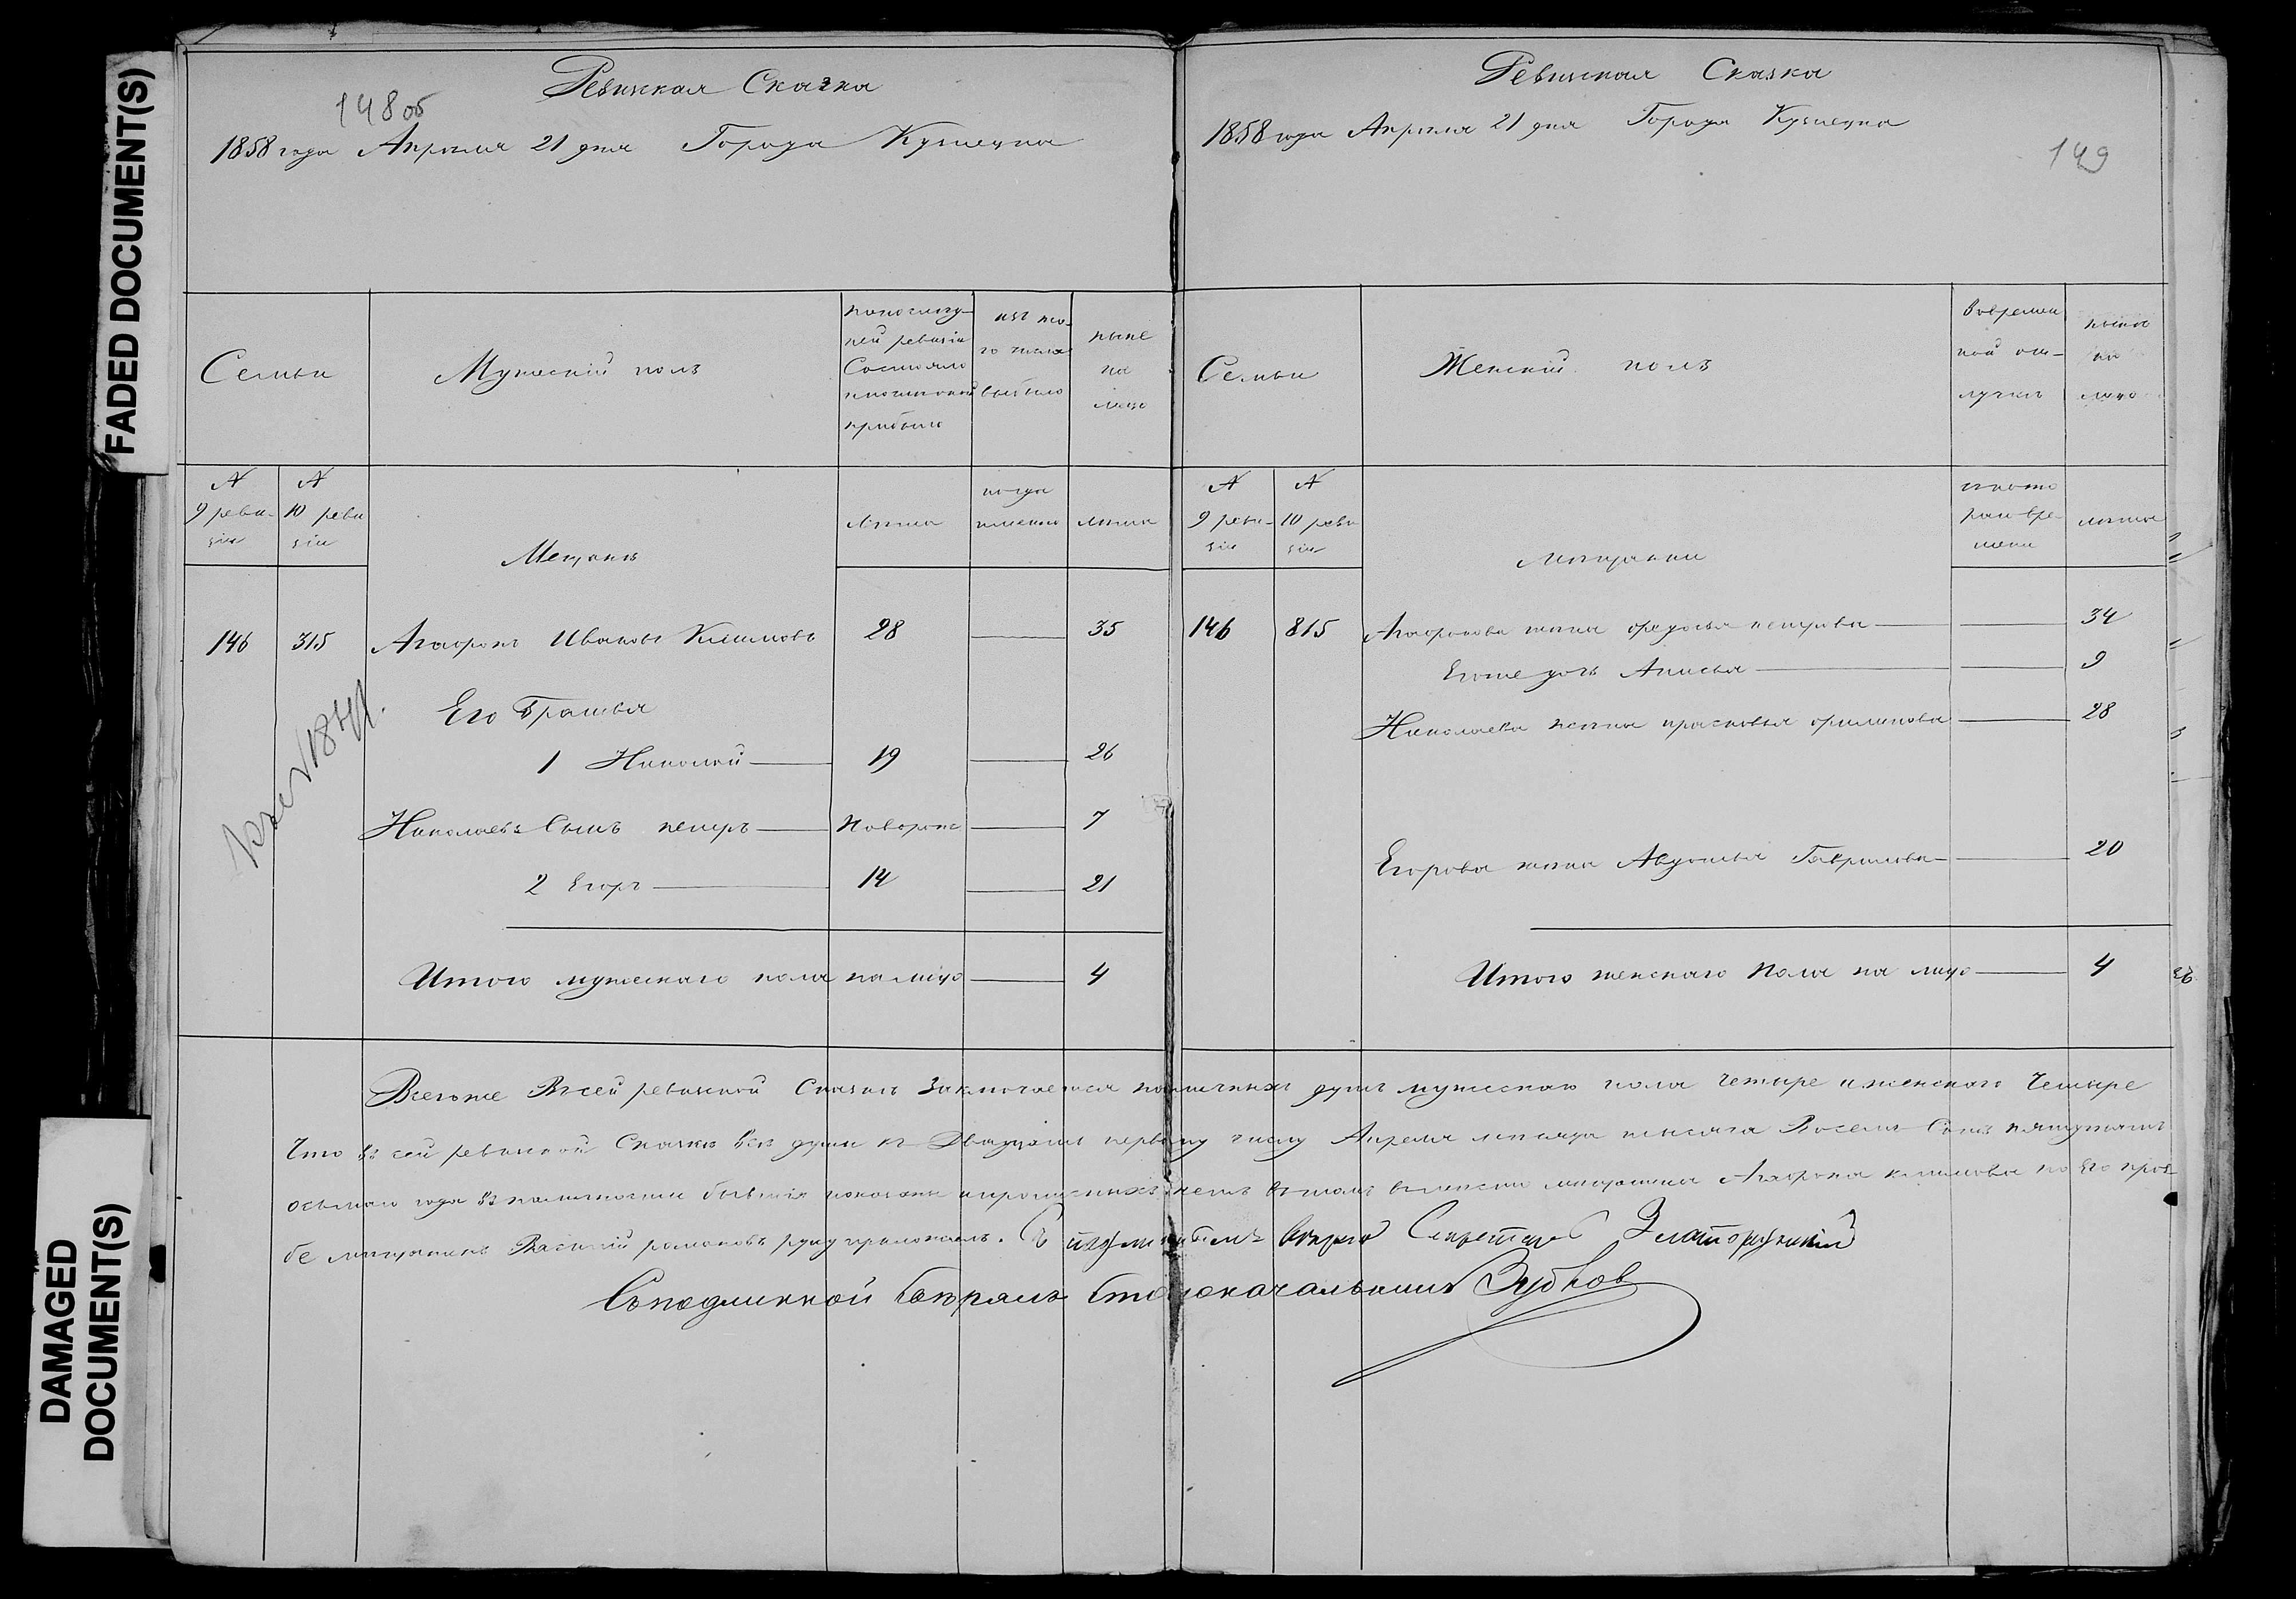 FADED DOCUMENT(S)
DAMAGED
DOCUMENT(S)
148 об
Ревизская Сказка
1858 года Апреля 21 дня Города Кузнецка
Семьи
Мужеский полъ
по последней ревизiи Состояло и после оной прибыло
изъ того числа выбыло
ныне на лицо
N 9 ревизiи
N 10 ревизiи
Мещане
лета
когда именно
лета
146 315 Агафонъ Ивановъ Климовъ 28 35
Его Братья
1 Николай 19 26
Николаевъ Сынъ петръ Новорож 7
2 Егоръ 14 21
Итого мужескаго пола на лицо 4
Ревизская Сказка
1858 года Апреля 21 дня Города Кузнецка
149
Семьи
Женскiй полъ
Во временной отлучке
ныне на лицо
N 9 ревизiи
N 10 ревизiи
мещанки
с котораго времени
лета
146 815 Агафонова жена федосья петрова 34
Егоже дочь Анисья 9
Николаева жена прасковья филипова 28
Егорова жена Авдотья Гаврилова 20
Итого женскаго пола на лицо 4
Всегоже Въ сей ревизской Сказке Заключается наличныхъ душъ мужескаго пола Четыре и женскаго Четыре
Что въ сей ревизской Сказке все души къ Двадцать первому числу Апреля месяца тысяча Восемь Сотъ пятдесятъ
осьмаго года въ наличности бывшiя показаны и прописныхъ нетъ въ томъ вместо мещанина Агафона климова по Его прозь
бе мещанинъ Василiй романовъ руку приложилъ. Съ подлиннымъ верно Секретарь
Съ подлинной сверялъ Столоначальникъ Зубков